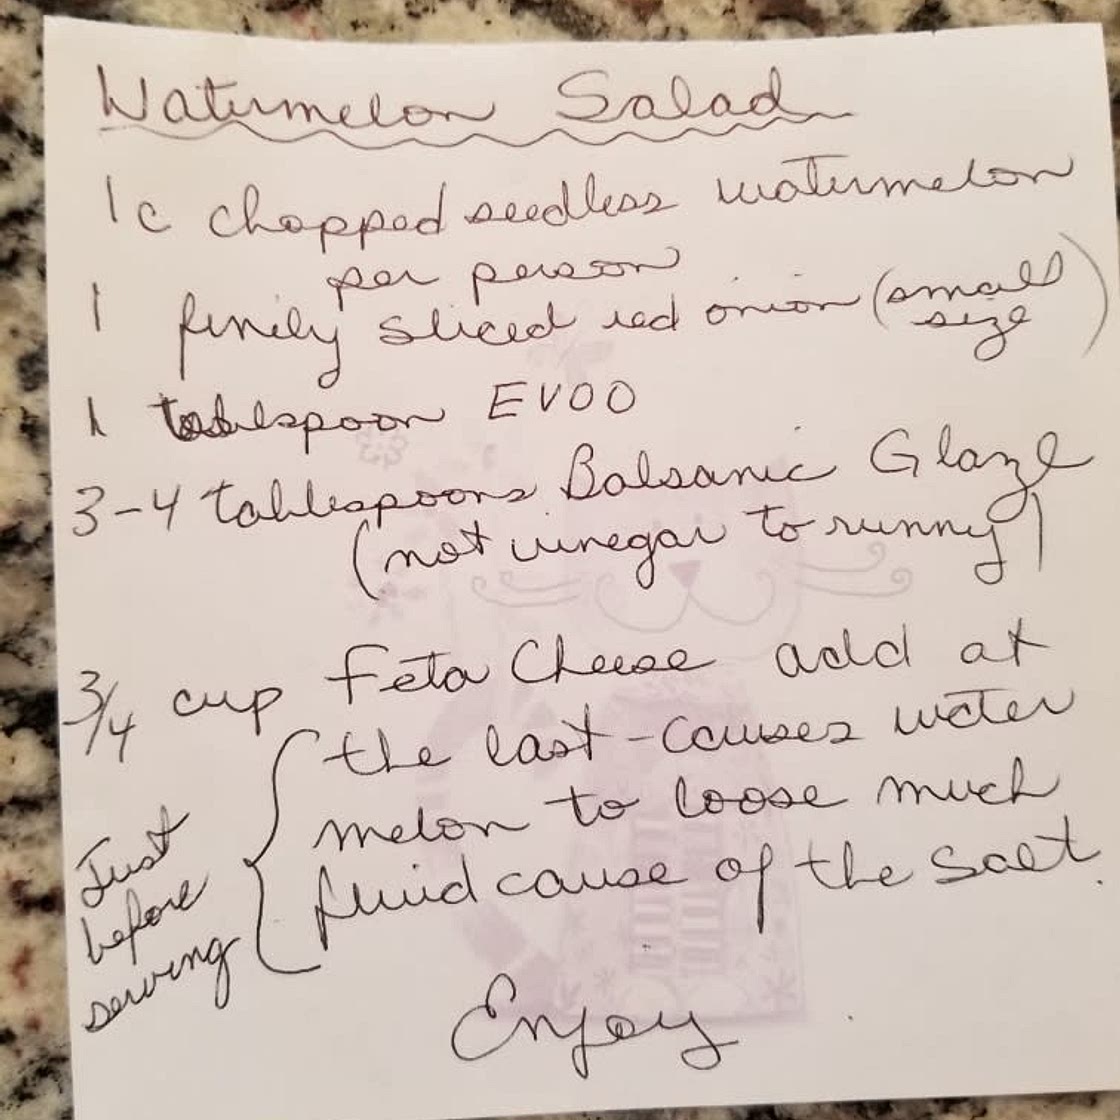 Watermelon Salad
1 c chopped seedless watermelon
per person
1 finely sliced red onion (small
size)
1 tablespoon EVOO
3-4 tablespoons Balsamic Glaze
(not vinegar to runny)
3/4 cup Feta Cheese add at
the last - causes water
melon to loose much
fluid cause of the salt.
Just
before
serving
Enjoy